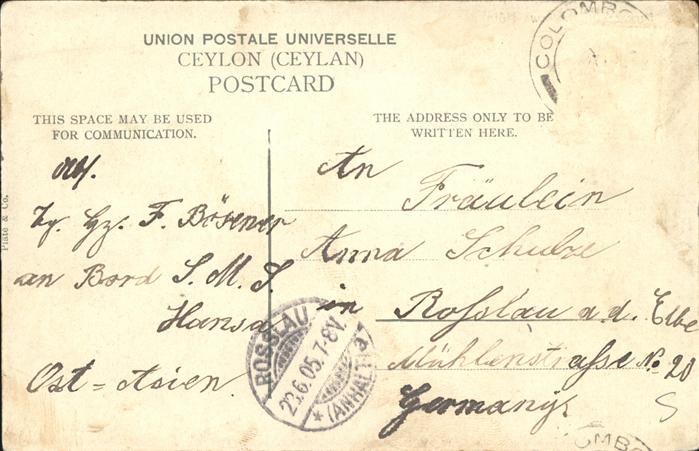 UNION POSTALE UNIVERSELLE
CEYLON (CEYLAN)
POSTCARD
COLOMBO
THIS SPACE MAY BE USED
FOR COMMUNICATION.
THE ADDRESS ONLY TO BE
WRITTEN HERE.
Plate & Co.
Abs.
F. Bösener
an Bord S. M. S.
Hansa
Ost=Asien
An
Fräulein
Anna Schulze
in Rosslau a. d. Elbe
Mühlenstrasse No. 20
Germany
ROSSLAU
23.6.05.7-8V.
* (ANHALT) a